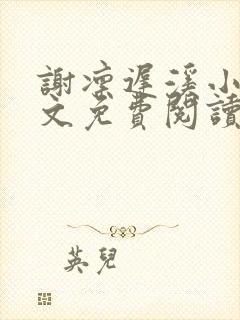 謝凛遲溪小
文免費閱讀
英兒